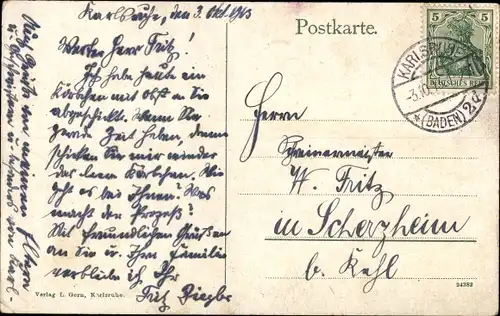 Karlsruhe, den 3. Okt. 1913
Werter Herr Fritz!
Ich habe heute ein
Körbchen mit Obst an Sie
abgeschickt. Wenn Sie
gerade Zeit haben, dann
schicken Sie mir wieder
das leere Körbchen. Wie
geht es bei Ihnen? Was
macht der Prozeß?
Mit freundlichen Grüßen
an Sie u. Ihre Familie
verbleibe ich Ihr
Fritz Ziegler
Viele Grüße von meinen Eltern
u. Geschwistern u. besonders von Karl
Verlag L. Gern, Karlsruhe.
Postkarte.
5 5
DEUTSCHES REICH
KARLSRUHE
3.10.
*(BADEN) 2d
Herrn
Schreinermeister
W. Fritz
in Scherzheim
b. Kehl
24382